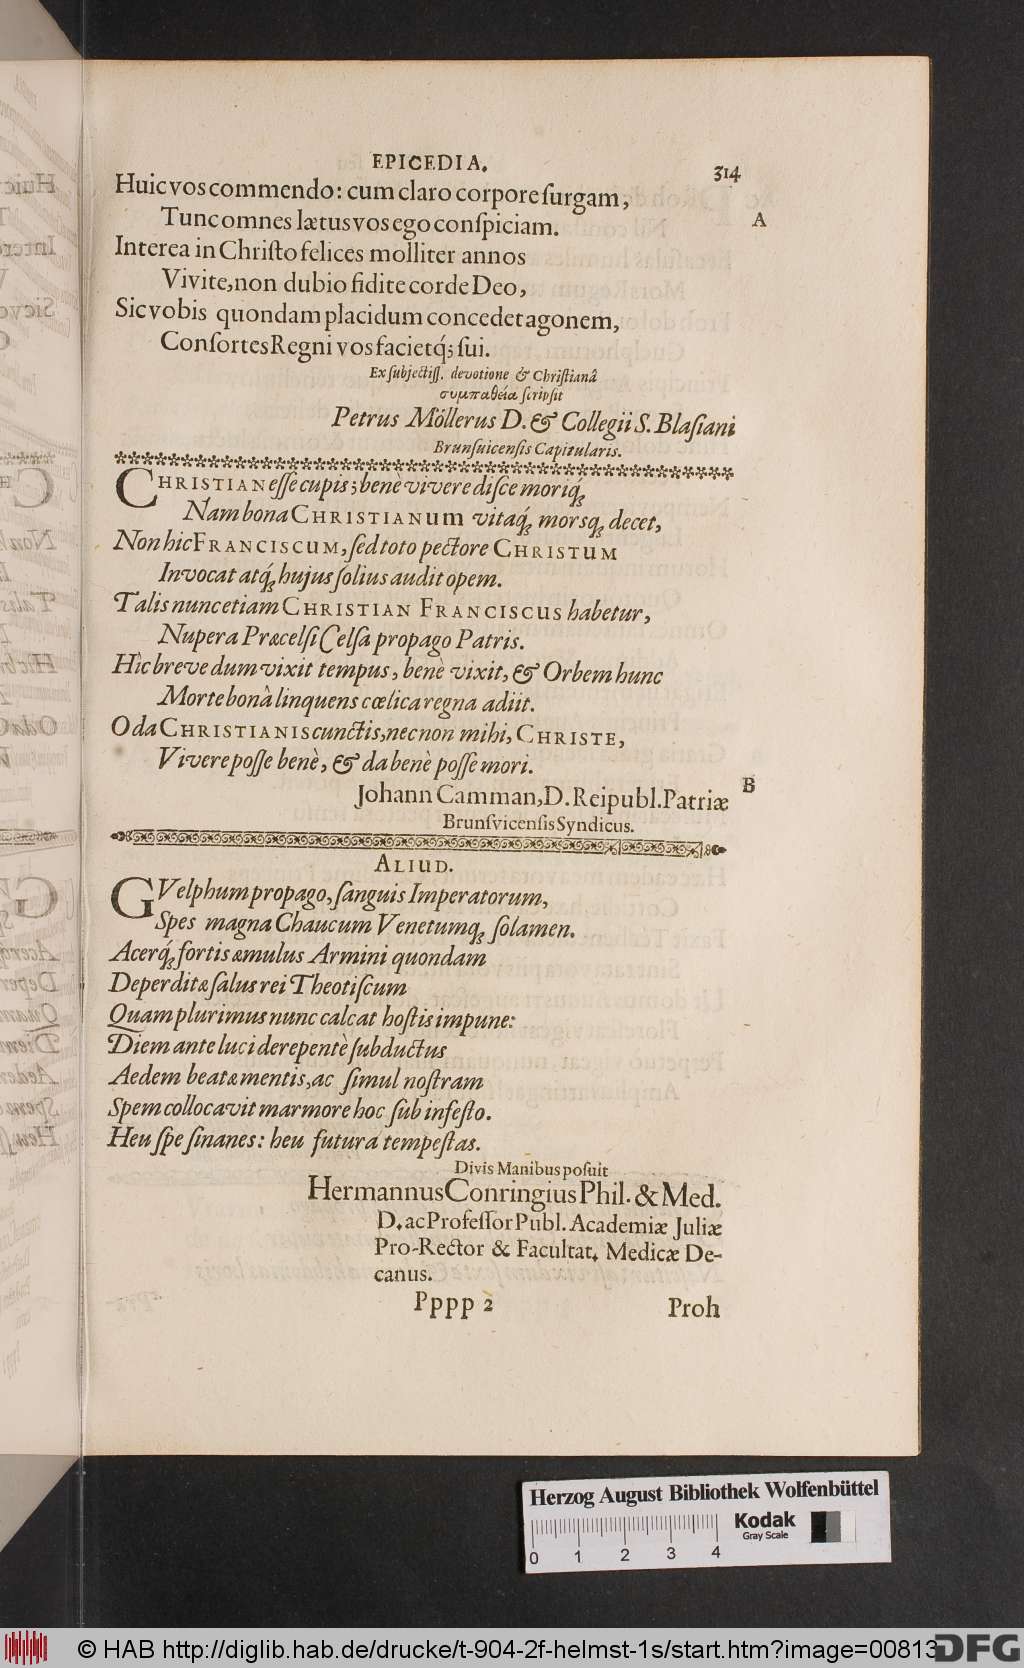 EPICEDIA. 314
Huic vos commendo: cum claro corpore ſurgam,
A
Tunc omnes lætus vos ego conſpiciam.
Interea in Chriſto felices molliter annos
Vivite, non dubio fidite corde Deo,
Sic vobis quondam placidum concedet agonem,
Conſortes Regni vos facietq́; ſui.
Ex ſubjectiſſ. devotione & Chriſtianâ
συμπαθείᾳ ſcripſit
Petrus Möllerus D. & Collegii S. Blaſiani
Brunſuicenſis Capitularis.
CHRISTIAN eſſe cupis; benè vivere diſce moriq́;
Nam bona CHRISTIANum vitaq́; morsq; decet,
Non hic FRANCISCUM, ſed toto pectore CHRISTUM
Invocat atq́; hujus ſolius audit opem.
Talis nunc etiam CHRISTIAN FRANCISCUS habetur,
Nupera Præcelſi Celſa propago Patris.
Hîc breve dum vixit tempus, benè vixit, & Orbem hunc
Morte bonâ linquens cœlica regna adiit.
O da CHRISTIANIS cunctis, nec non mihi, CHRISTE,
Vivere poſſe benè, & da benè poſſe mori.
B
Johann Camman, D. Reipubl. Patriæ
Brunſvicenſis Syndicus.
ALIUD.
GVelphum propago, ſanguis Imperatorum,
Spes magna Chaucum Venetumq; ſolamen.
Acerq́; fortis æmulus Armini quondam
Deperditæ ſalus rei Theotiſcum
Quam plurimus nunc calcat hoſtis impune:
Diem ante luci derepentè ſubductus
Aedem beatæ mentis, ac ſimul noſtram
Spem collocavit marmore hoc ſub infeſto.
Heu ſpe ſinanes: heu futura tempeſtas.
Divis Manibus poſuit
Hermannus Conringius Phil. & Med.
D. ac Profeſſor Publ. Academiæ Juliæ
Pro-Rector & Facultat. Medicæ De-
canus.
Pppp 2 Proh
Herzog August Bibliothek Wolfenbüttel
Kodak
Gray Scale
0 1 2 3 4
© HAB http://diglib.hab.de/drucke/t-904-2f-helmst-1s/start.htm?image=00813
DFG